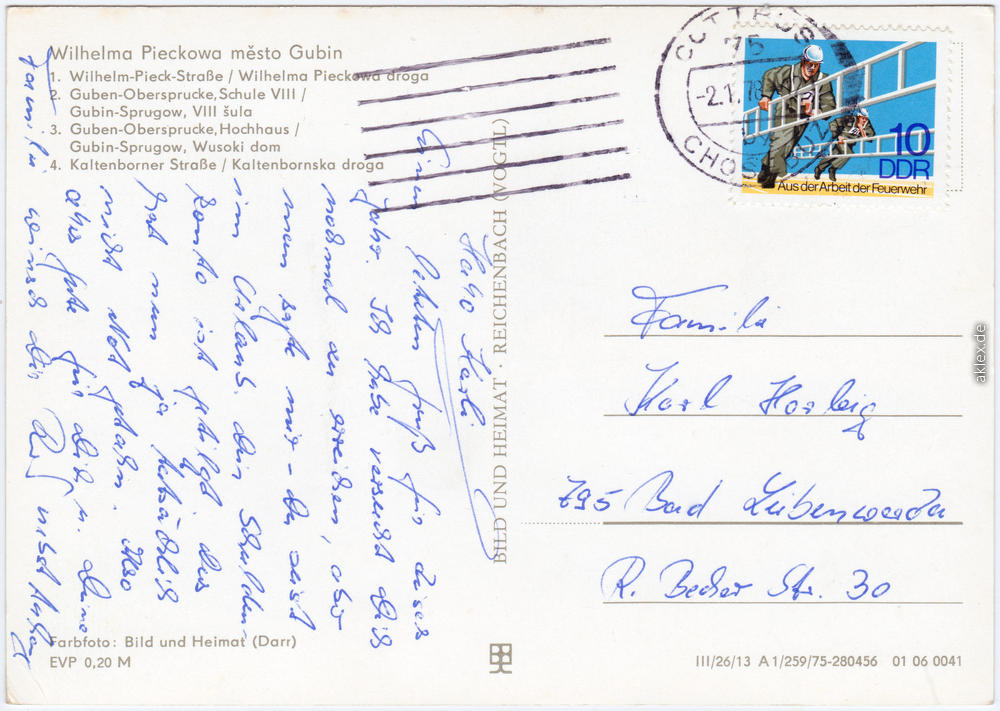 Wilhelma Pieckowa město Gubin
1. Wilhelm-Pieck-Straße / Wilhelma Pieckowa droga
2. Guben-Obersprucke, Schule VIII /
Gubin-Sprugow, VIII šula
3. Guben-Obersprucke, Hochhaus /
Gubin-Sprugow, Wusoki dom
4. Kaltenborner Straße / Kaltenbornska droga
Hallo Karli
Einen
letzten Gruß für dieses
Jahr. Ich habe versucht Dich
nochmal zu erreichen, aber
man sagte mir - Du seist
im Urlaub. Dein Schulden-
konto ist getilgt. Das
hat nun ja tatsächlich
nicht Not getahn. Also
alles Gute für Dich u. Deine
Familie wünscht Dir
BILD UND HEIMAT · REICHENBACH (VOGTL)
COTTBUS
75
-2.1.78
CHOŚ
10
DDR
Aus der Arbeit der Feuerwehr
Familie
Karl Horbig
795 Bad Liebenwerda
R. Becher Str. 30
Farbfoto: Bild und Heimat (Darr)
EVP 0,20 M
III/26/13 A 1/259/75-280456 01 06 0041
aklex.de